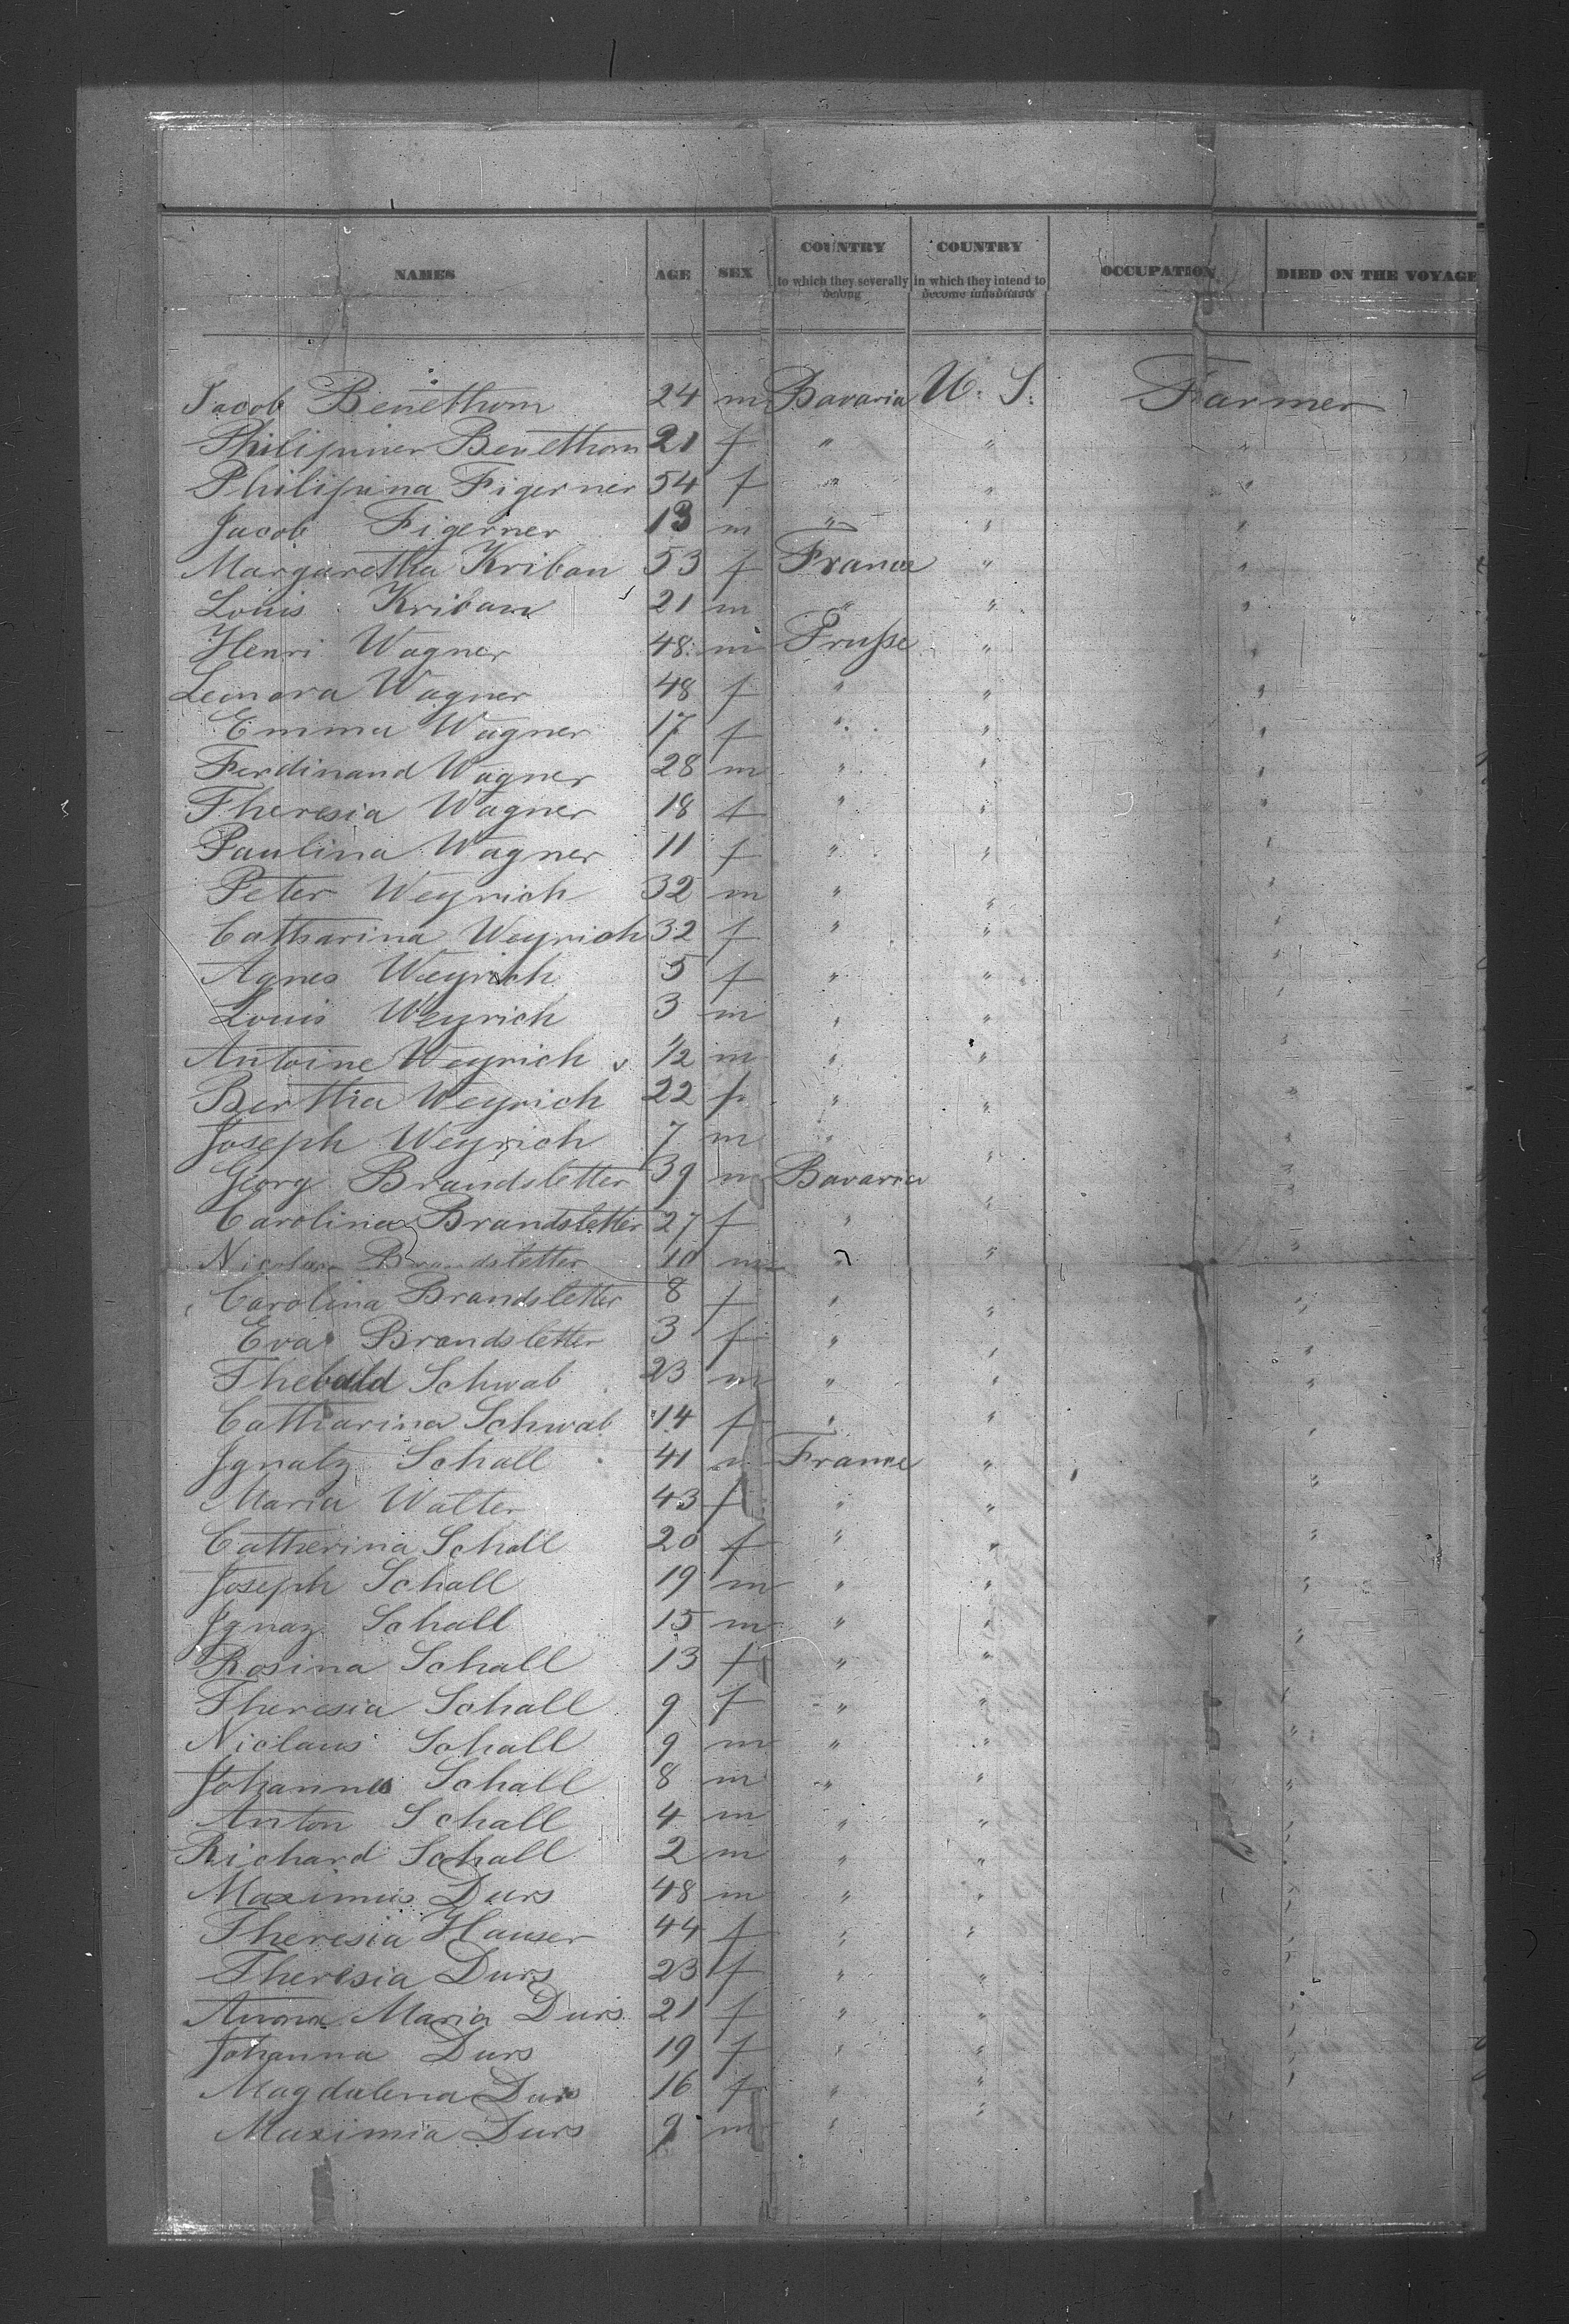 NAMES AGE SEX COUNTRY to which they severally belong COUNTRY in which they intend to become inhabitants OCCUPATION DIED ON THE VOYAGE
Jacob Benethom 24 m Bavaria U. S. Farmer
Philipiner Benethom 21 f " " "
Philipina Figerner 54 f " " "
Jacob Figerner 13 m " " "
Margaretha Kriban 53 f France " "
Louis Kriban 21 m " " "
Henri Wagner 48 m Prusse " "
Leonora Wagner 48 f " " "
Emma Wagner 17 f " " "
Ferdinand Wagner 28 m " " "
Theresia Wagner 18 f " " "
Paulina Wagner 11 f " " "
Peter Weyrich 32 m " " "
Catharina Weyrich 32 f " " "
Agnes Weyrich 5 f " " "
Louis Weyrich 3 m " " "
Antoine Weyrich 1/2 m " " "
Bertha Weyrich 22 f " " "
Joseph Weyrich 7 m " " "
Georg Brandsletter 39 m Bavaria " "
Carolina Brandsletter 27 f " " "
Nicolaus Brandsletter 10 m " " "
Carolina Brandsletter 8 f " " "
Eva Brandsletter 3 f " " "
Thebald Schwab 23 m " " "
Catharina Schwab 14 f " " "
Ignatz Schall 41 m France " "
Maria Walter 43 f " " "
Catherina Schall 20 f " " "
Joseph Schall 19 m " " "
Ignaz Schall 15 m " " "
Rosina Schall 13 f " " "
Theresia Schall 9 f " " "
Niclaus Schall 9 m " " "
Johannes Schall 8 m " " "
Anton Schall 4 m " " "
Richard Schall 2 m " " "
Maximus Durs 48 m " " "
Theresia Hauser 44 f " " "
Theresia Durs 23 f " " "
Anna Maria Durs 21 f " " "
Johanna Durs 19 f " " "
Magdalena Durs 16 f " " "
Maximia Durs 9 m " "